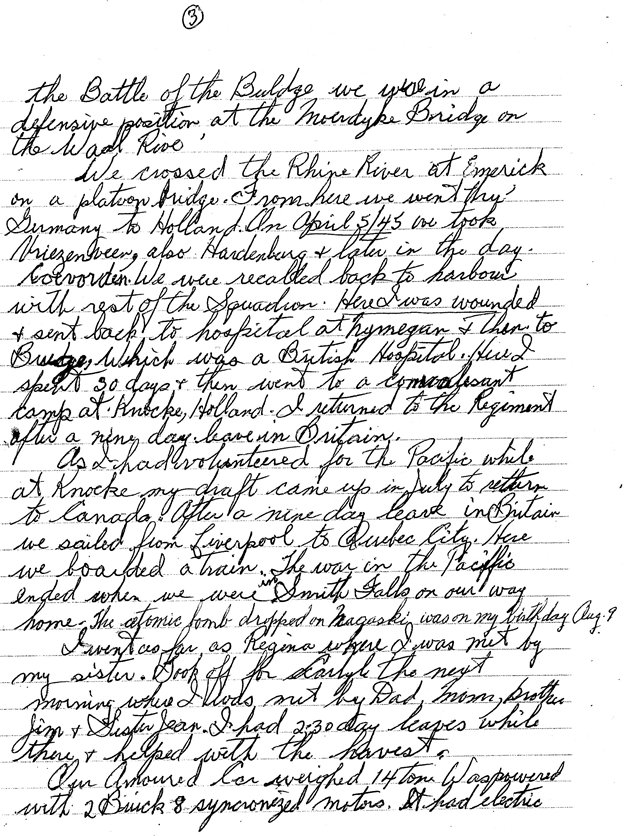 3
the Battle of the Buldge we were in a
defensive position at the Moerdyke Bridge on
the Waal River
We crossed the Rhine River at Emerick
on a platoon bridge. From here we went thru
Germany to Holland. On April 5/45 we took
Vriezenveen, also Hardenburg & later in the day.
Coevorden. We were recalled back to harbour
with rest of the Squadron. Here I was wounded
& sent back to hospital at Nymegan & then to
Bruges, which was a British Hospital. Here I
spent 30 days & then went to a convalesant
camp at Knocke, Holland. I returned to the Regiment
after a nine day leave in Britain.
As I had volunteered for the Pacific while
at Knocke my draft came up in July to return
to Canada. After a nine day leave in Britain
we sailed from Liverpool to Quebec City. Here
we boarded a train. The war in the Pacific
ended when we were in Smith Falls on our way
home. The atomic bomb dropped on Nagaski was on my birthday Aug. 9
I went as far as Regina where I was met by
my sister. Took off for Carlyle the next
morning where I was met by Dad, Mom, brother
Jim & Sister Jean. I had 2-30 day leaves while
there & helped with the havest.
Our Amoured Car weighed 14 ton. Was powered
with 2 Buick 8 syncronized motors. It had electric